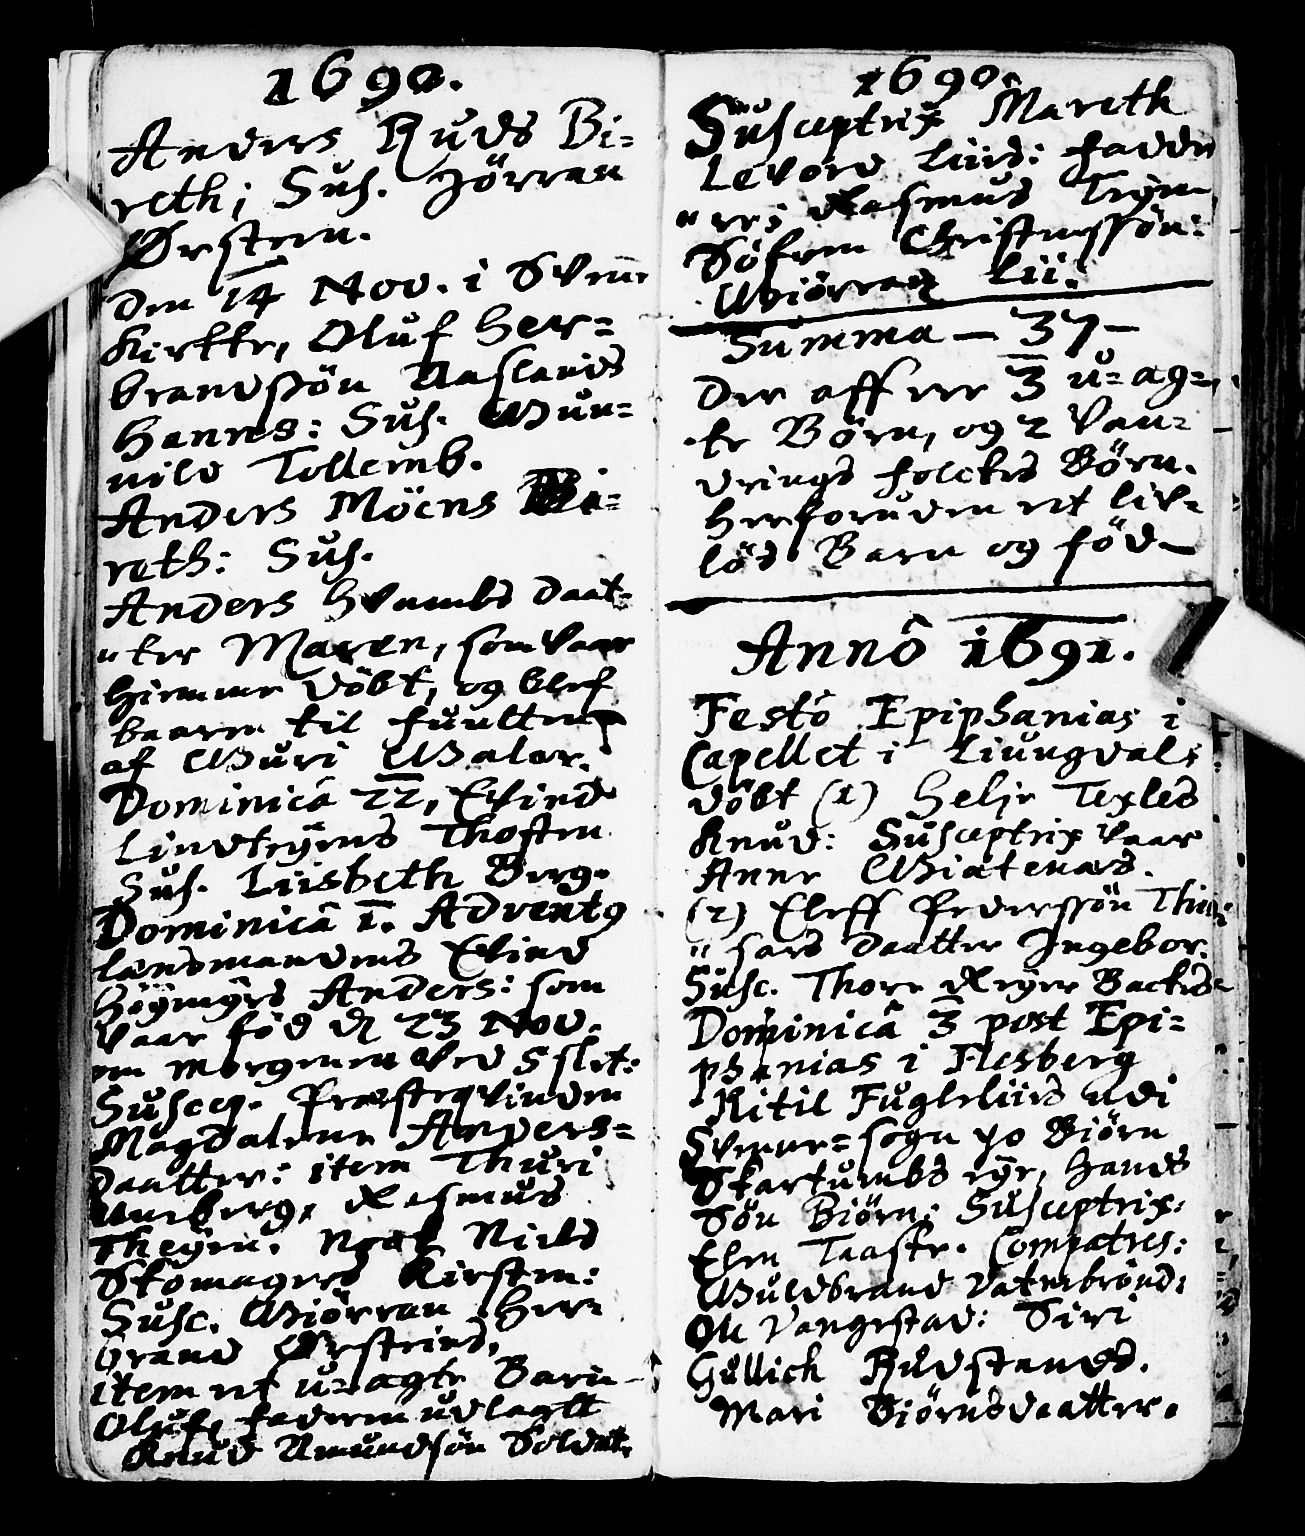 1690.
Anders Ruds Bi=
reth; Sus. Jörran
Ørsteen.
Den 14 Nov. i Svenn
Kirkke, Oluf Her=
brandssön Aaslands
Hannes: Sus. Gun=
nild Tollemb.
Anders Möens Bi=
reth: Sus.
Anders Hvambs Daat=
"ter Maren, som vaar
hiemme döbt, og blef
baaren til fuultning
af Guri Galar.
Dominica 22, Evind
Lindtejens Thosten
Sus. Liisbeth Berg.
Dominicâ 1. Adventus
Lændsmandens Evind
Höymyrs Anders: som
vaar föd d 23 Nov.
om morgenen ved 5 slet:
Suscep. Præsteqvinden
Magdalene Anders=
daatter: item Thuri
Umberg, Rasmus
Theyen. Nock Niels
Stomagers Kirsten:
Susc. Giörran Her=
brand Ørsteins,
item et u=agte Barn
Oluf, faderen udlagtt
Knud Amundsön Soldat.
1690.
Susceptrix Mareth
Levord Liid: fadde
"re; Rasmus Teyen
Söfren Christenssön:
Giörran Lii.
Summa — 37 —
Der aff ere 3 u=ag=
te Börn, og 2 van=
drings folckes Börn.
Herforuden et liv=
löst Barn og föd —
Annô 1691.
Festô Epiphanias i
Capellet i Liungdal;
döbt (1) Helje Texles
Knud: Susceptrix vaar
Anne Giätenæs.
(2) Eleff Pederssön
"sæs daatter Ingebor.
Susc. Thore Reyre Backes
Dominicâ 3 post Epi=
phanias i Flesberg
Kitil Fugleliids udi
Svenne=sogn po Biörn
Skartumbs eye, hands
Sön Biörn: Susceptrix:
Elen Taaste. Compatres:
Guldbrand Vatnebrönd:
Ole Vangestad: Siri
Gullich Rudstands.
Mari Biörnsdaatter.